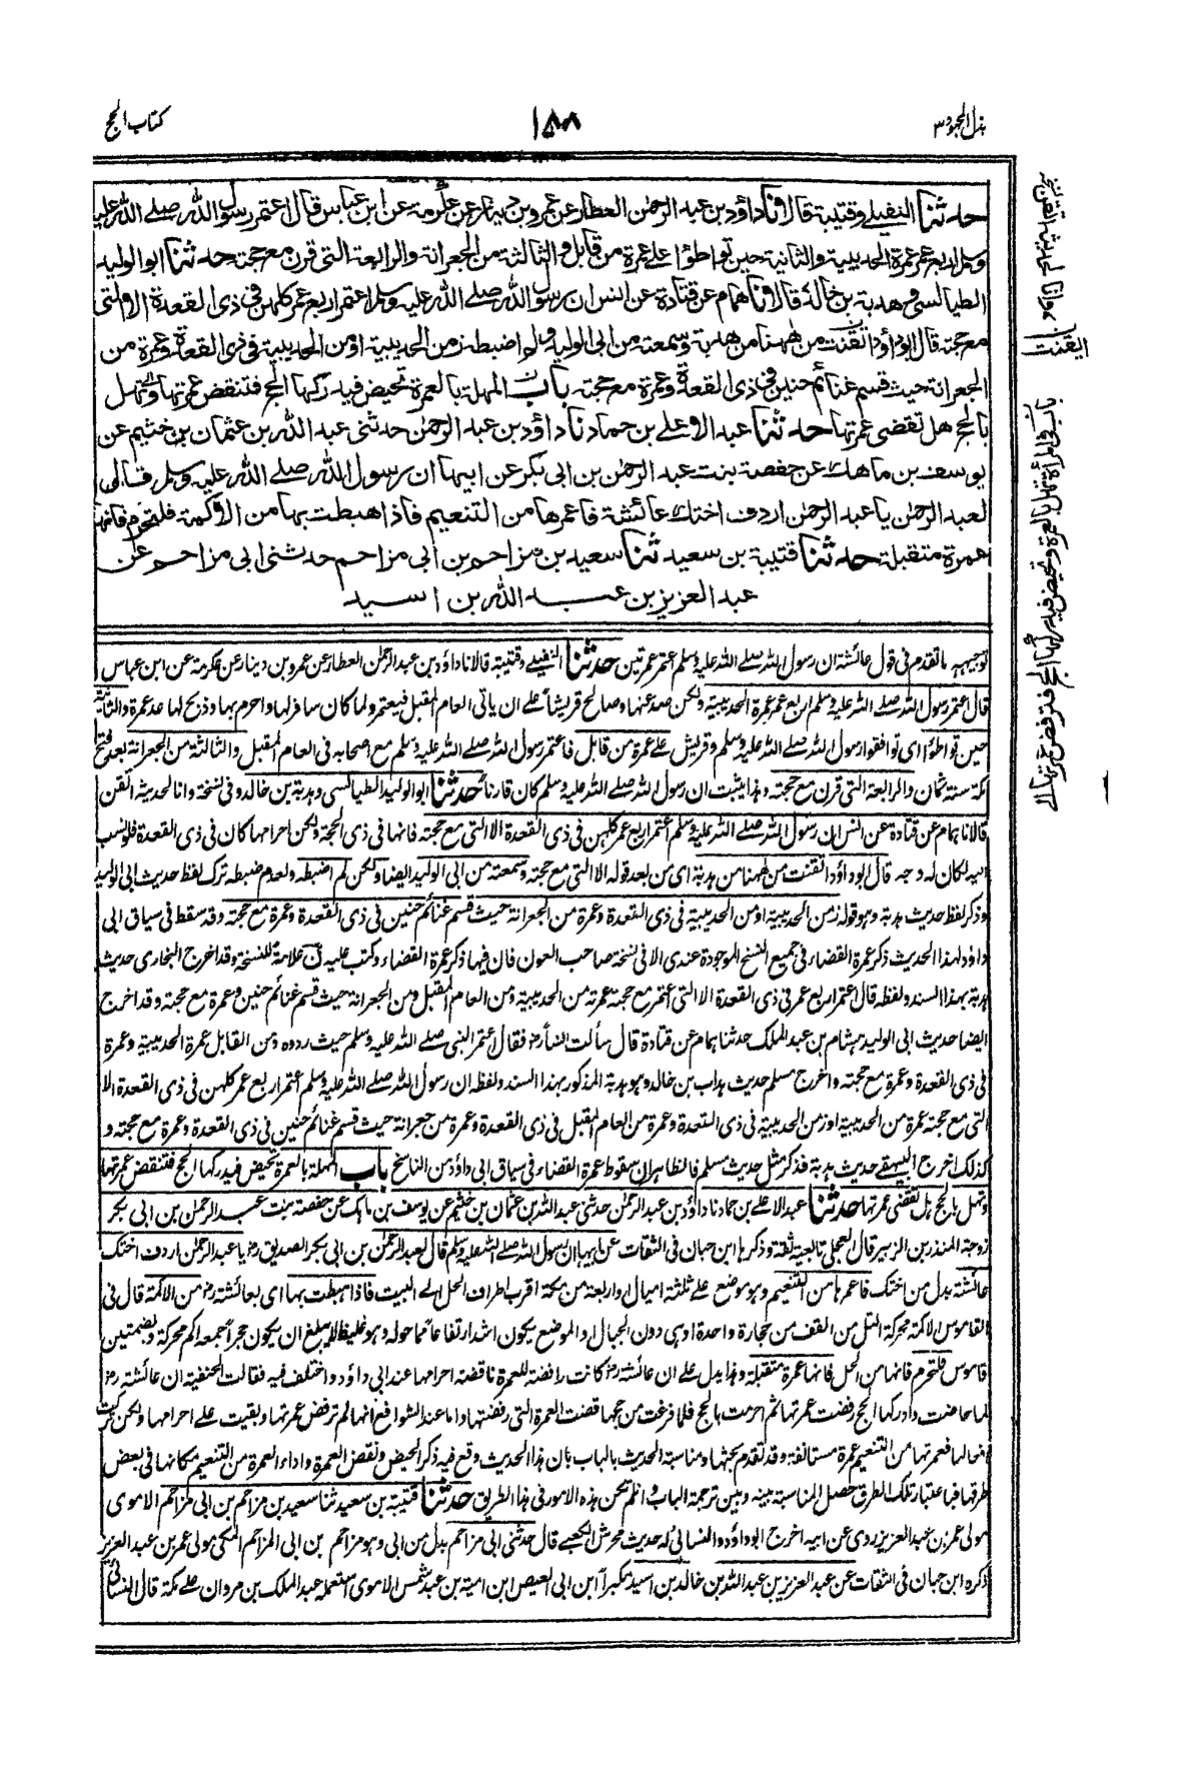 بذل المجهود ٣
١٥٨
كتاب الحج
حدثنا النفيلي وقتيبة قالا نا داؤد بن عبد الرحمن العطار عن عمرو بن دينار عن عكرمة عن ابن عباس قال اعتمر رسول الله صلے الله عليه
وسلم اربع عمر عمرة الحديبية والثانية حين تواطؤا علے عمرة من قابل والثالثة من الجعرانة والرابعة التى قرن مع حجته حدثنا ابو الوليد
الطيالسى وهدبة بن خالد قالا نا همام عن قتادة عن انس ان رسول الله صلے الله عليه وسلم اعتمر اربع عمر كلهن فى ذى القعدة الا التى
مع حجته قال ابو داؤد اتقنت من ههنا من هدبة وسمعته من ابى الوليد ولم اضبطه زمن الحديبية او من الحديبية فى ذى القعدة وعمرة من
الجعرانة حيث قسم غنائم حنين فى ذى القعدة وعمرة مع حجته باب المهلة بالعمرة تحيض فيدركها الحج فتنقض عمرتها وتهل
بالحج هل تقضى عمرتها حدثنا عبد الاعلے بن حماد نا داؤد بن عبد الرحمن حدثنى عبد الله بن عثمان بن خثيم عن
يوسف بن ماهك عن حفصة بنت عبد الرحمن بن ابى بكر عن ابيها ان رسول الله صلے الله عليه وسلم قال
لعبد الرحمن يا عبد الرحمن اردف اختك عائشة فاعمرها من التنعيم فاذا هبطت بها من الاكمة فلتحرم فانها
عمرة متقبلة حدثنا قتيبة بن سعيد ثنا سعيد بن مزاحم بن ابى مزاحم حدثنى ابى مزاحم عن
عبد العزيز بن عبد الله بن اسيد
توجيهه ما تقدم فى قول عائشة ان رسول الله صلے الله عليه وسلم اعتمر عمرتين حدثنا النفيلے وقتيبة قالا نا داؤد بن عبد الرحمن العطار عن عمرو بن دينار عن عكرمة عن ابن عباس
قال اعتمر رسول الله صلے الله عليه وسلم اربع عمر عمرة الحديبية ولكن صد عنها وصالح قريشا علے ان ياتى العام المقبل فيعتمر ولما كان سافر لها واحرم بها وذبح لها عد عمرة والثانية
حين تواطؤا اى توافقوا رسول الله صلے الله عليه وسلم وقريش علے عمرة من قابل فاعتمر رسول الله صلے الله عليه وسلم مع اصحابه فى العام المقبل والثالثة من الجعرانة بعد فتح
مكة سنة ثمان والرابعة التى قرن مع حجته وهذا يثبت ان رسول الله صلے الله عليه وسلم كان قارنا حدثنا ابو الوليد الطيالسى وهدبة بن خالد وفى نسخة وانا لحديثه اتقن
قالا نا همام عن قتادة عن انس ان رسول الله صلے الله عليه وسلم اعتمر اربع عمر كلهن فى ذى القعدة الا التى مع حجته فانها فى ذى الحجة ولكن احرامها كان فى ذى القعدة فلو نسب
اليه لكان له وجه قال ابو داؤد اتقنت من ههنا من هدبة اى من بعد قوله الا التى مع حجته وسمعته من ابى الوليد ايضا ولكن لم اضبطه ولعدم ضبطه ترك لفظ حديث ابى الوليد
وذكر لفظ حديث هدبة وهو قوله زمن الحديبية او من الحديبية فى ذى القعدة وعمرة من الجعرانة حيث قسم غنائم حنين فى ذى القعدة وعمرة مع حجته وقد سقط فى سياق ابى
داؤد لهذا الحديث ذكر عمرة القضاء فى جميع النسخ الموجودة عندى الا فى نسخة صاحب العون فان فيها ذكر عمرة القضاء وكتب عليه ن علامة للنسخة وقد اخرج البخارى حديث
هدبة بهذا السند ولفظه قال اعتمر اربع عمر فى ذى القعدة الا التى اعتمر مع حجته عمرته من الحديبية ومن العام المقبل ومن الجعرانة حيث قسم غنائم حنين وعمرة مع حجته وقد اخرج
ايضا حديث ابى الوليد هشام بن عبد الملك حدثنا همام عن قتادة قال سألت انسا رض فقال اعتمر النبى صلے الله عليه وسلم حيث ردوه ومن القابل عمرة الحديبية وعمرة
فى ذى القعدة وعمرة مع حجته واخرج مسلم حديث هداب بن خالد وهو هدبة المذكور بهذا السند ولفظه ان رسول الله صلے الله عليه وسلم اعتمر اربع عمر كلهن فى ذى القعدة الا
التى مع حجته عمرة من الحديبية او زمن الحديبية فى ذى القعدة وعمرة من العام المقبل فى ذى القعدة وعمرة من جعرانة حيث قسم غنائم حنين فى ذى القعدة وعمرة مع حجته و
كذلك اخرج البيهقے حديث هدبة فذكر مثل حديث مسلم فالظاهر ان سقوط عمرة القضاء فى سياق ابى داؤد من الناسخ باب المهلة بالعمرة تحيض فيدركها الحج فتنقض عمرتها
وتهل بالحج هل تقضى عمرتها حدثنا عبد الاعلے بن حماد نا داؤد بن عبد الرحمن حدثنى عبد الله بن عثمان بن خثيم عن يوسف بن ماهك عن حفصة بنت عبد الرحمن بن ابى بكر
زوجة المنذر بن الزبير قال العجلى تابعية ثقة وذكرها ابن حبان فى الثقات عن ابيها ان رسول الله صلے الله عليه وسلم قال لعبد الرحمن بن ابى بكر الصديق رض يا عبد الرحمن اردف اختك
عائشة بدل من اختك فاعمرها من التنعيم وهو موضع علے ثلثة اميال او اربعة من مكة اقرب اطراف الحل الے البيت فاذا هبطت بها اى بعائشة رض من الاكمة قال فى
القاموس الاكمة محركة التل من القف من حجارة واحدة او هى دون الجبال او الموضع يكون اشد ارتفاعا مما حوله وهو غليظ لا يبلغ ان يكون حجرا جمعه اكم محركة وبضمتين
قاموس فلتحرم فانها من الحل فانها عمرة متقبلة وهذا يدل علے ان عائشة رض كانت رافضة للعمرة ناقضة احرامها عند ابى داؤد واختلف فيه فقالت الحنفية ان عائشة رض
لما حاضت وادركها الحج رفضت عمرتها ثم احرمت بالحج فلما فرغت من حجها قضت العمرة التى رفضتها واما عند الشوافع انها لم ترفض عمرتها وبقيت علے احرامها ولكن تركت
افعالها فعمرتها من التنعيم عمرة مستانفة وقد تقدم بحثها ومناسبة الحديث بالباب بان هذا الحديث وقع فيه ذكر الحيض ونقض العمرة واداء العمرة من التنعيم مكانها فى بعض
طرقها فباعتبار تلك الطرق حصل المناسبة بينه وبين ترجمة الباب وان لم تكن هذه الامور فى هذا الطريق حدثنا قتيبة بن سعيد ثنا سعيد بن مزاحم بن ابى مزاحم الاموى
مولى عمر بن عبد العزيز روى عن ابيه اخرج ابو داؤد والنسائى له حديث محرش الكعبے قال حدثنى ابى مزاحم بدل من ابى وهو مزاحم بن ابى المزاحم المكى مولى عمر بن عبد العزيز
ذكره ابن حبان فى الثقات عن عبد العزيز بن عبد الله بن خالد بن اسيد مكبرا ابن ابى العيص ابن امية بن عبد شمس الاموى استعمله عبد الملك بن مروان علے مكة قال النسائى